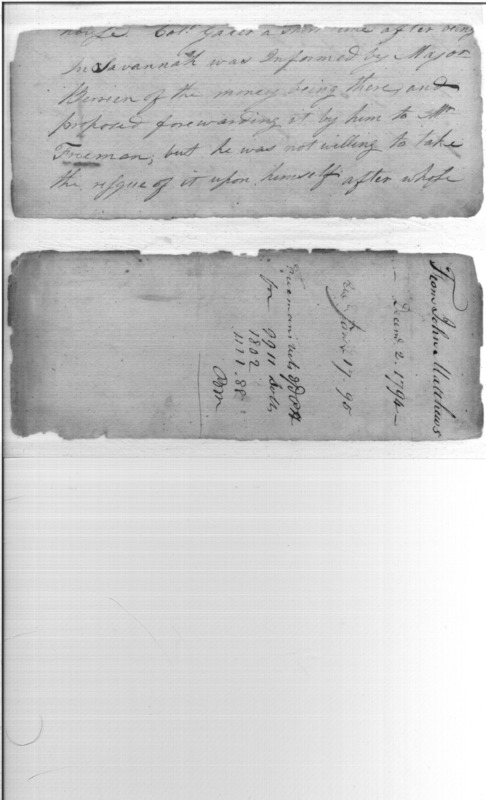 Colº. Gaeer a Short time after being
in Savannah was Informed by Major
Berrien of the money being there, and
proposed forewarding it by him to Mr
Freeman, but he was not willing to take
the risque of it upon himself after whose
From John Matthews
2. 1794
Jany 17. 95
Freemans
for 9911 Dolls,
1802
1111.88